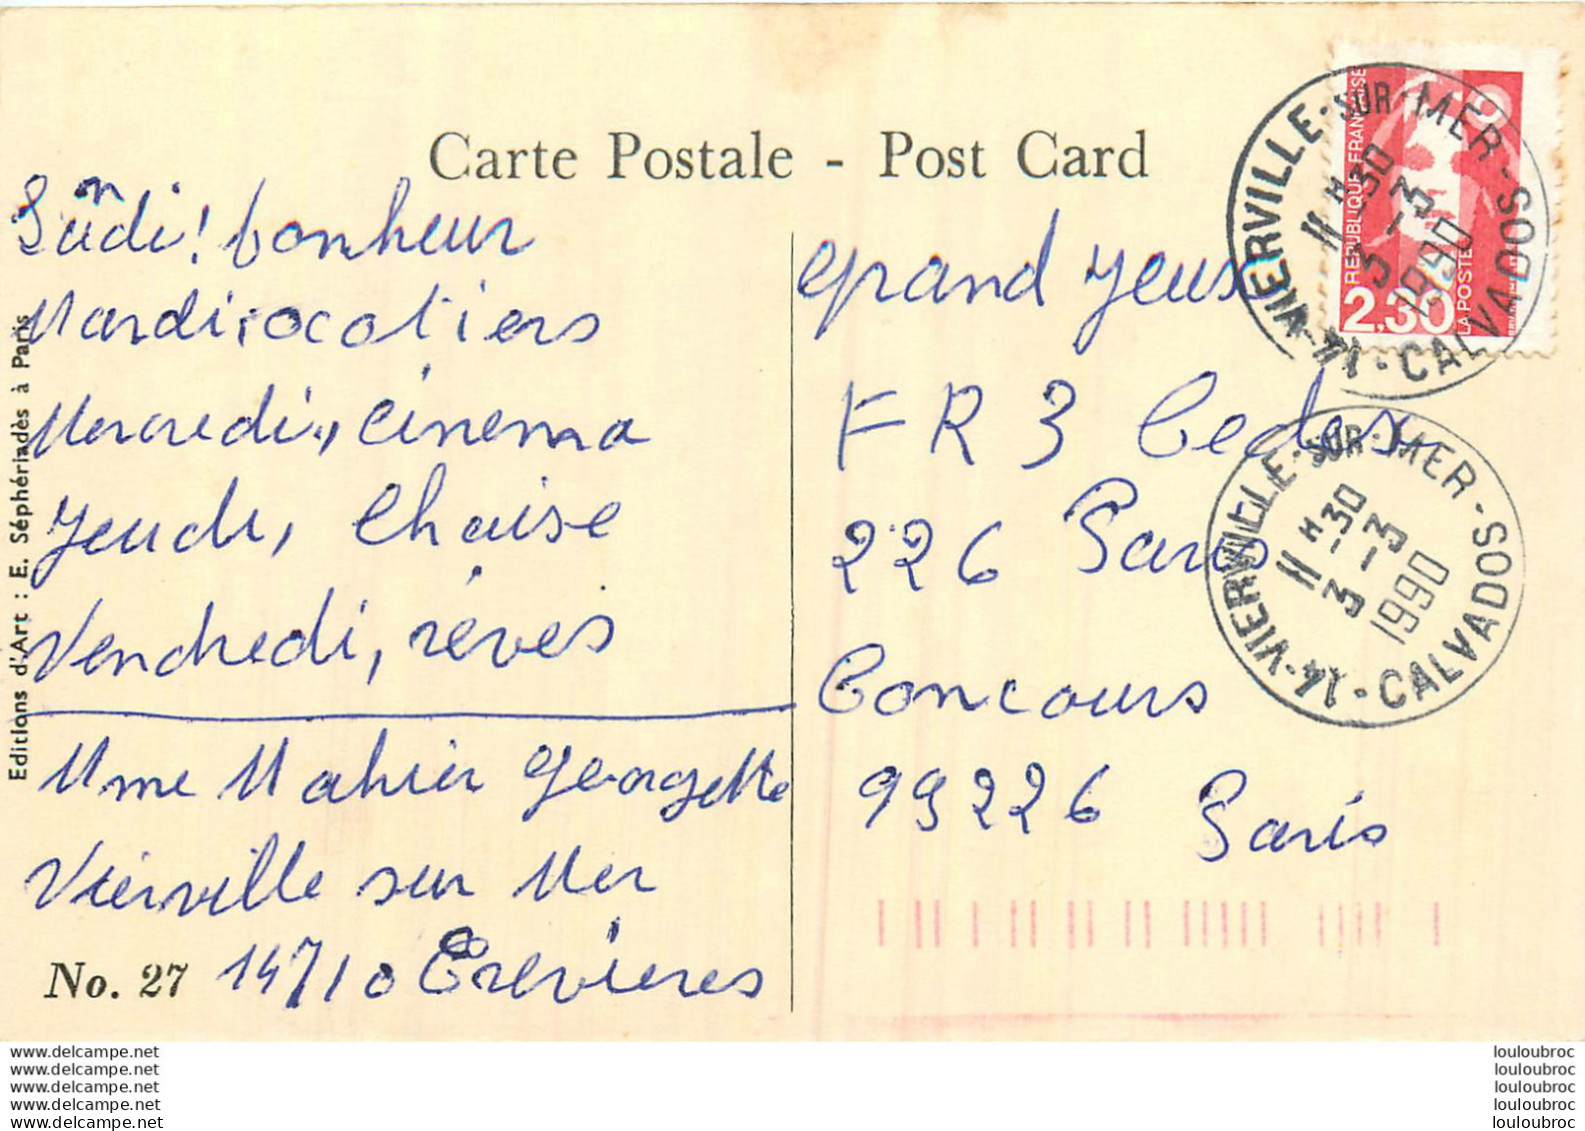 Carte Postale - Post Card
Lundi! bonheur
Mardi, ocotiers
Mercredi, cinema
Jeudi, Chaise
Vendredi, rêves
Mme Mahier Georgette
Vierville sur Mer
14710 Trevieres
No. 27
Editions d'Art : E. Séphériadès à Paris
Grand Jeus
FR3 Cedex
226 Paris
Concours
99226 Paris
REPUBLIQUE FRANÇAISE
2,30
LA POSTE
14 - VIERVILLE-SUR-MER - CALVADOS
11 H 30
3 - 3
1990
14 - VIERVILLE-SUR-MER - CALVADOS
11 H 30
3 - 3
1990
www.delcampe.net
www.delcampe.net
www.delcampe.net
www.delcampe.net
www.delcampe.net
louloubroc
louloubroc
louloubroc
louloubroc
louloubroc